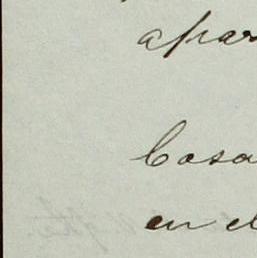 apar
Casa
en el